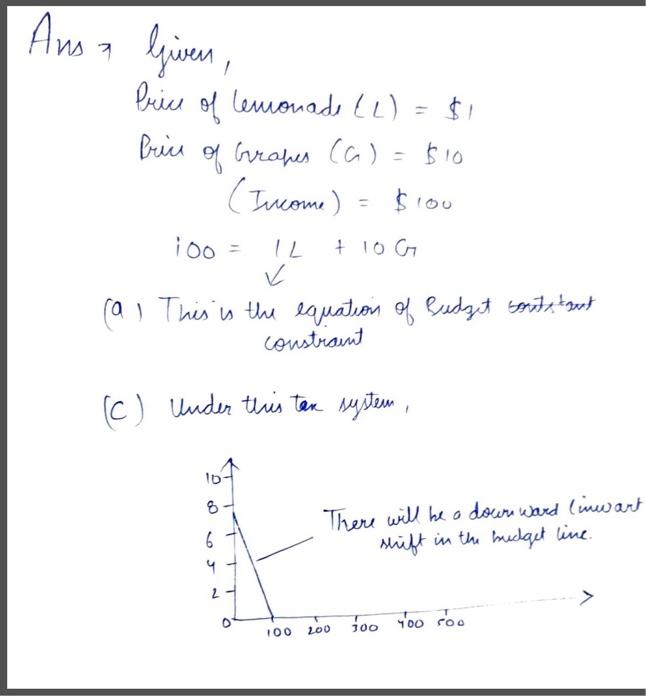 Ans → Given,
Price of Lemonade (L) = $1
Price of Grapes (G) = $10
(Income) = $100
100 = 1L + 10G
(a) This is the equation of Budget
constraint
(C) Under this tax system,
10
8
6
4
2
0
There will be a downward (inwart
shift in the budget line.
100 200 300 400 500